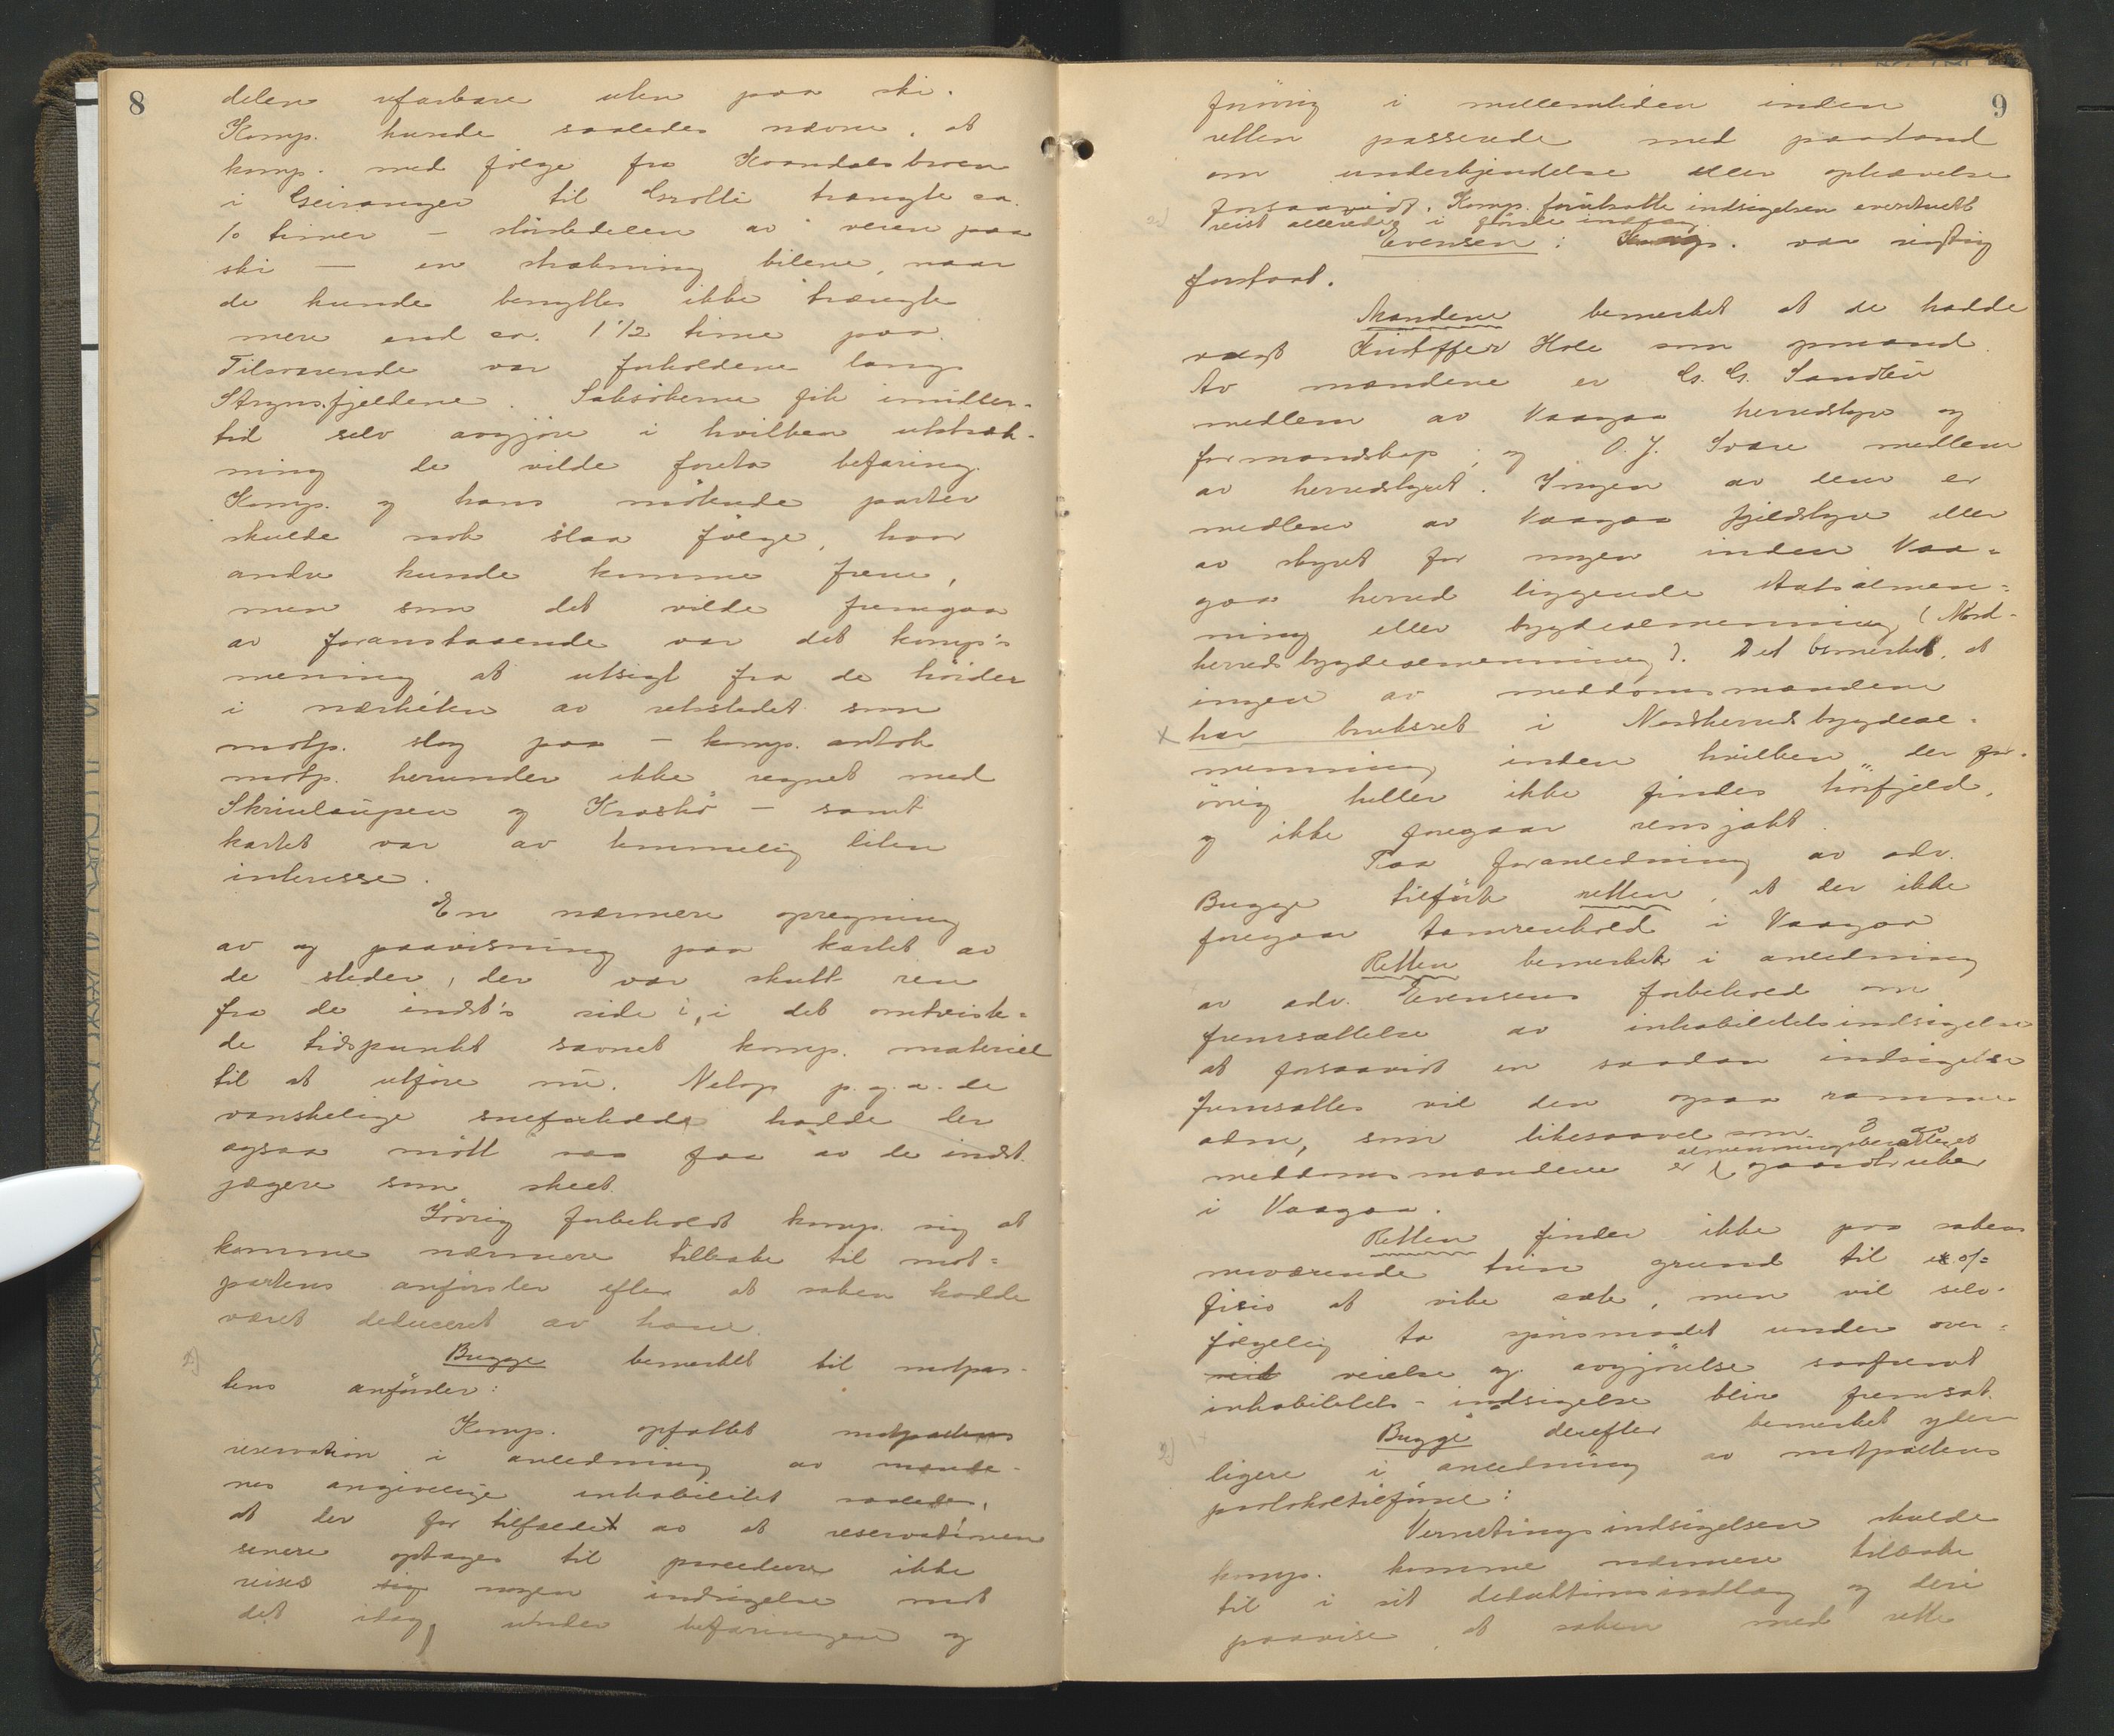 8
delen ufarbare uten paa ski.
Komp. kunde saaledes nævne, at
komp. med følge fra Kvandalsbroen
i Geiranger til Grotli trængte ca.
10 timer – størstedelen av veien paa
ski – en strækning bilene, naar
de kunde benyttes ikke trængte
mere end ca. 1 1/2 time paa.
Tilsvarende var forholdene langs
Strynsfjeldene. Saksøkerne fik imidler-
tid selv avgjøre i hvilken utstræk-
ning de vilde foreta befaring.
Komp. og hans møtende parter
skulde nok slaa følge, hvor
andre kunde komme frem,
men som det vilde fremgaa
av foranstaaende var det komp's
mening at utsigt fra de høider
i nærheten av retsstedet som
motp. slog paa – komp. antok
motp. herunder ikke regnet med
Skridulaupen og Kroshø – samt
kartet var av temmelig liten
interesse.
En nærmere opregning
av og paavisning paa kartet av
de steder, der var skutt ren
fra de indst's side i det omtviste-
de tidspunkt savnet komp. materiel
til at utføre nu. Netop p.g.a. de
vanskelige sneforholde hadde der
ogsaa møtt saa faa av de indst.
jægere som skeet.
Iøvrig forbeholdt komp. sig at
komme nærmere tilbake til mot-
partens anførsler efter at saken hadde
været deduceret av ham.
2) Bugge bemerket til motpar-
tens anførsler:
Komp. opfattet motpartens
reservation i anledning av mænde-
nes angivelige inhabilitet saaledes,
at der for tilfældet av at reservationen
senere optages til procedure ikke
reises sig nogen indsigelse mot
det idag under befaringen og
9
forøvrig i mellemtiden inden
retten passerede med paastand
om underkjendelse eller ophævelse
forsaavidt. Komp. forutsatte indsigelsen eventuelt
reist allerede i første indlæg.
Evensen: Komp. var rigtig
forstaat.
Mændene bemerket at de hadde
valgt Kristoffer Hole som opmand.
Av mændene er G. G. Sandbu
medlem av Vaagaa herredstyre og
formandskap, og O. J. Svare medlem
av herredstyret. Ingen av dem er
medlem av Vaagaa fjeldstyre eller
av styret for nogen inden Vaa-
gaa herred liggende statsalmen-
ning eller bygdealmenning (Nord-
herreds bygdealmenning). Det bemerkes, at
ingen av meddomsmændene
x har bruksret i Nordherreds bygdeal-
menning inden hvilken der for-
øvrig heller ikke findes høifjeld,
og ikke foregaar rensjakt.
Paa foranledning av adv.
Bugge tilførte retten, at der ikke
foregaar tamrenhold i Vaagaa
Retten bemerket i anledning
av adv. Evensens forbehold om
fremsættelse av inhabilitetsindsigelse
at forsaavidt en saadan indsigelse
fremsættes vil den ogsaa ramme
adm, som likesaavel som 3 av
meddomsmændene er almenningsberettiget gaardbruker
i Vaagaa.
Retten finder ikke paa sakens
nuværende trin grund til ex of-
ficio at vike sæte, men vil selv-
følgelig ta spørsmaalet under over-
veielse og avgjørelse saafremt
inhabilitets-indsigelse blir fremsat.
2) Bugge derefter bemerket yder-
ligere i anledning av motpartens
protokoltilførsel:
Vernetingsindsigelsen skulde
komp. komme nærmere tilbake
til i sit deduktionsindlæg og deri
paavise, at saken med rette